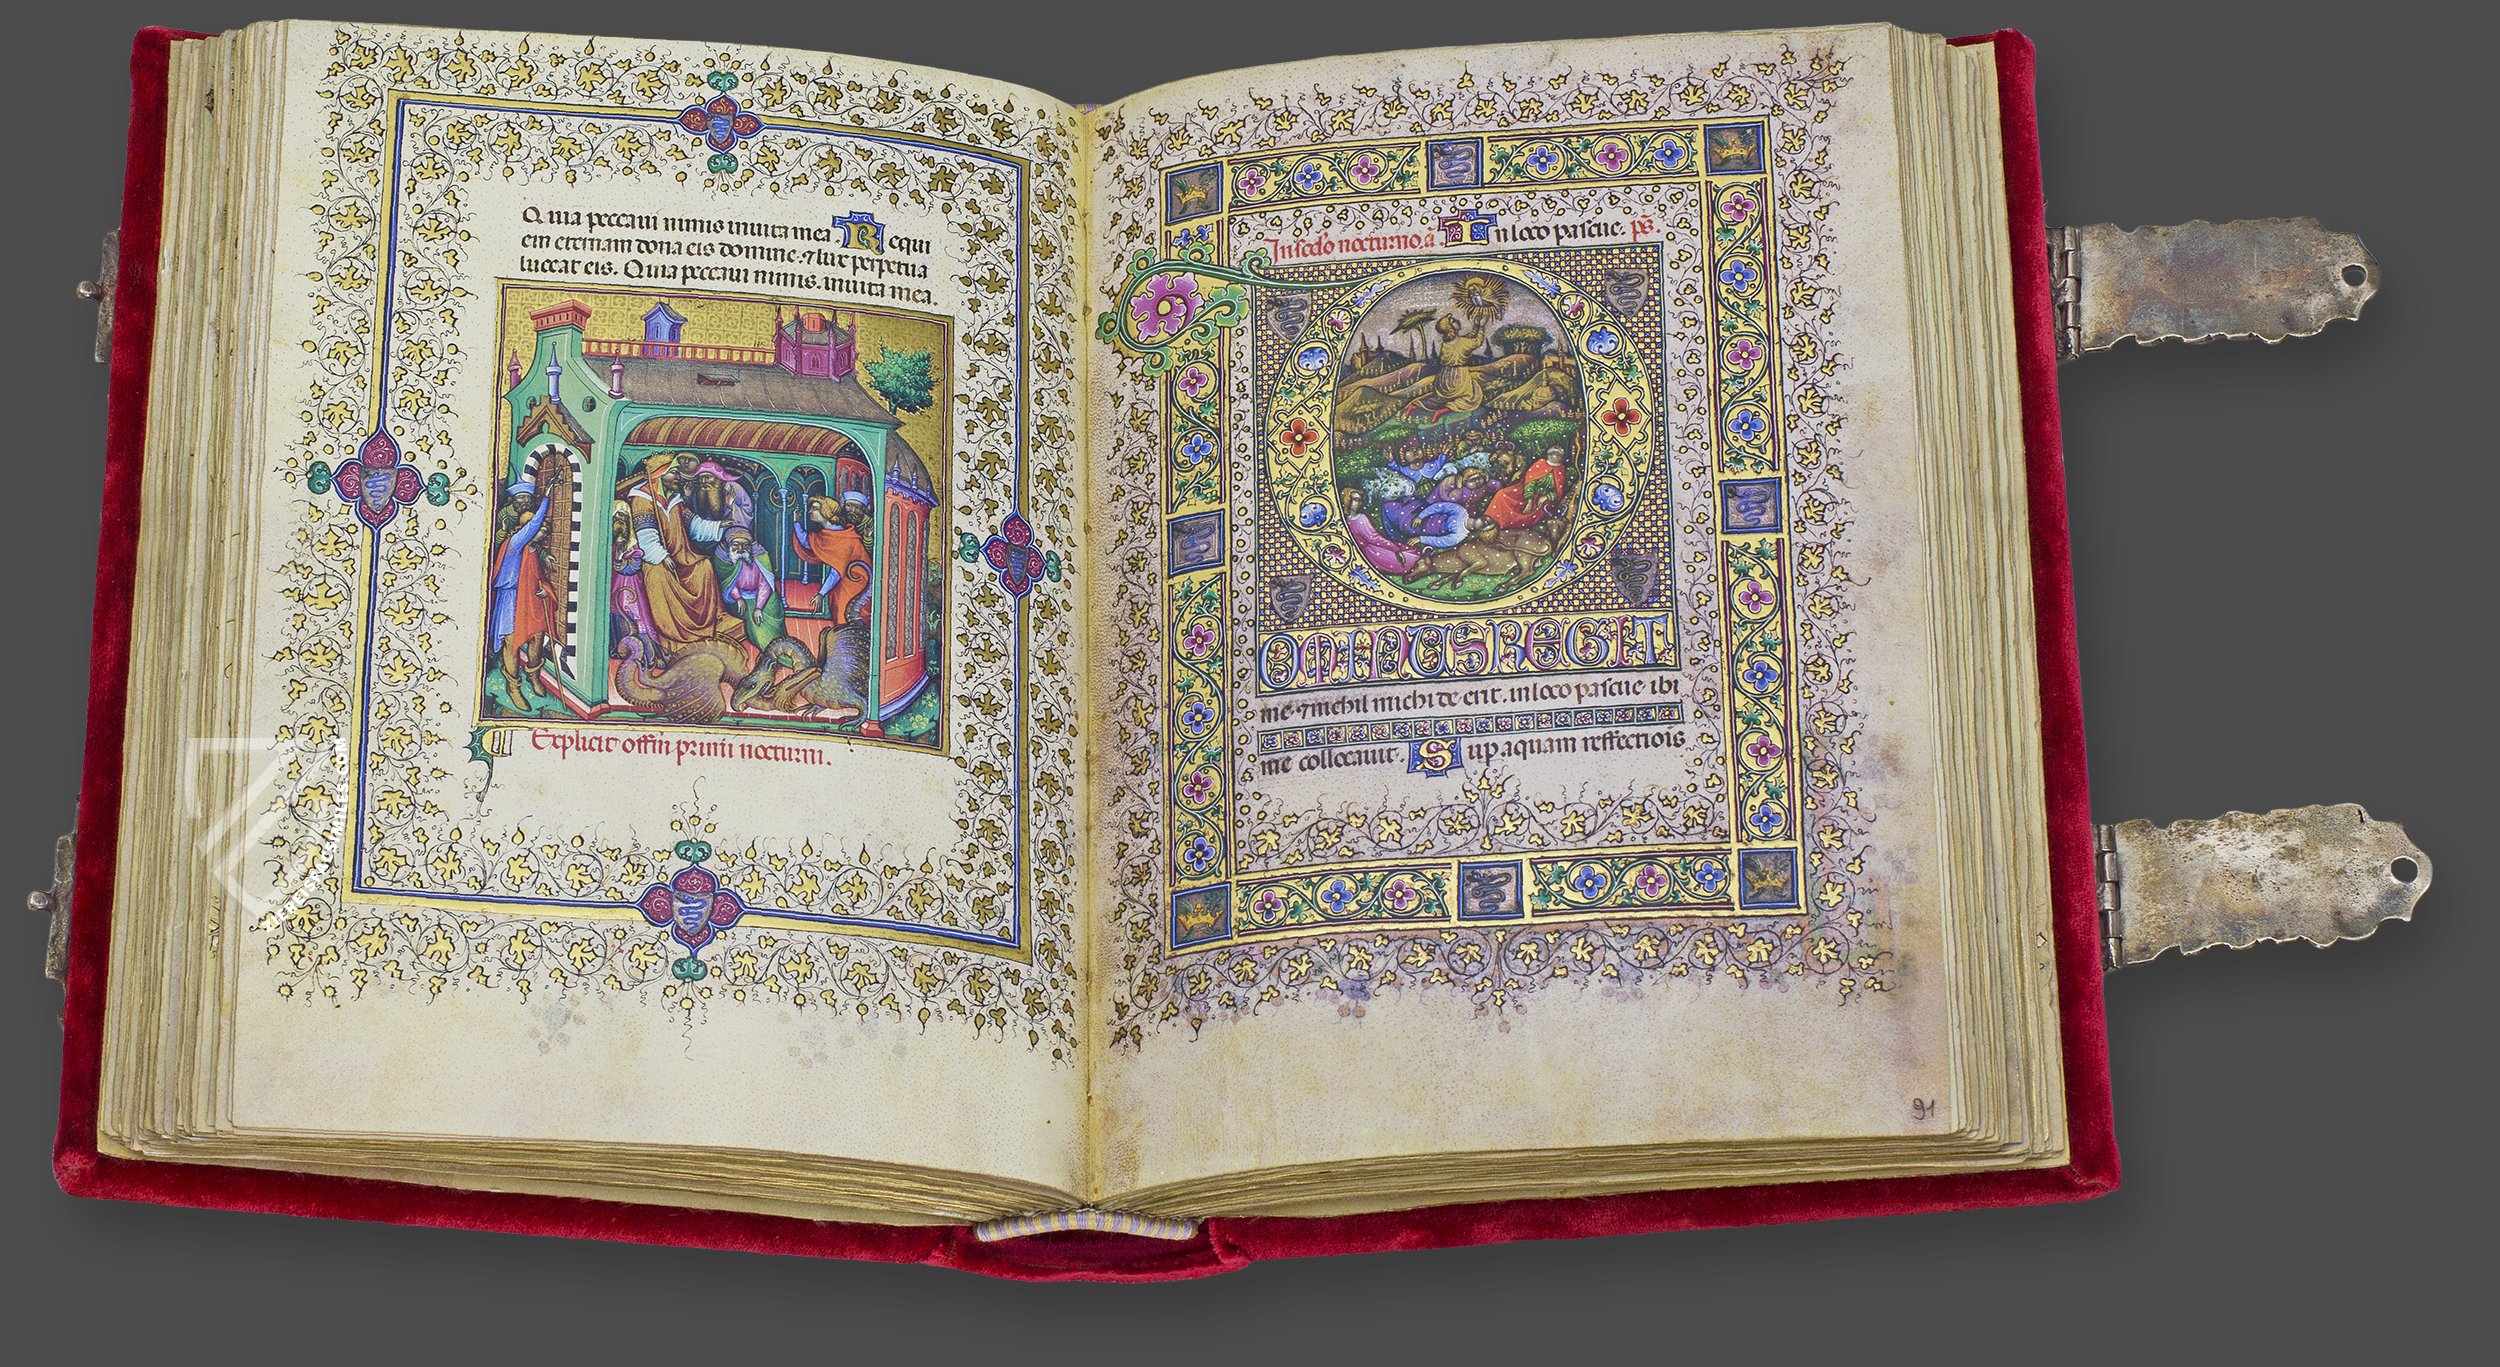 Quia peccaui nimis inuita mea. Requi
em eternam dona eis domine. ⁊ lux perpetua
luceat eis. Quia peccaui nimis. inuita mea.
Explicit offm primi nocturni.
In scdo nocturno. a. In loco pascue. ps.
DOMINUS REGIT
me. ⁊ nichil michi de erit. in loco pascue ibi
me collocauit. Sup aquam reffectiois
91